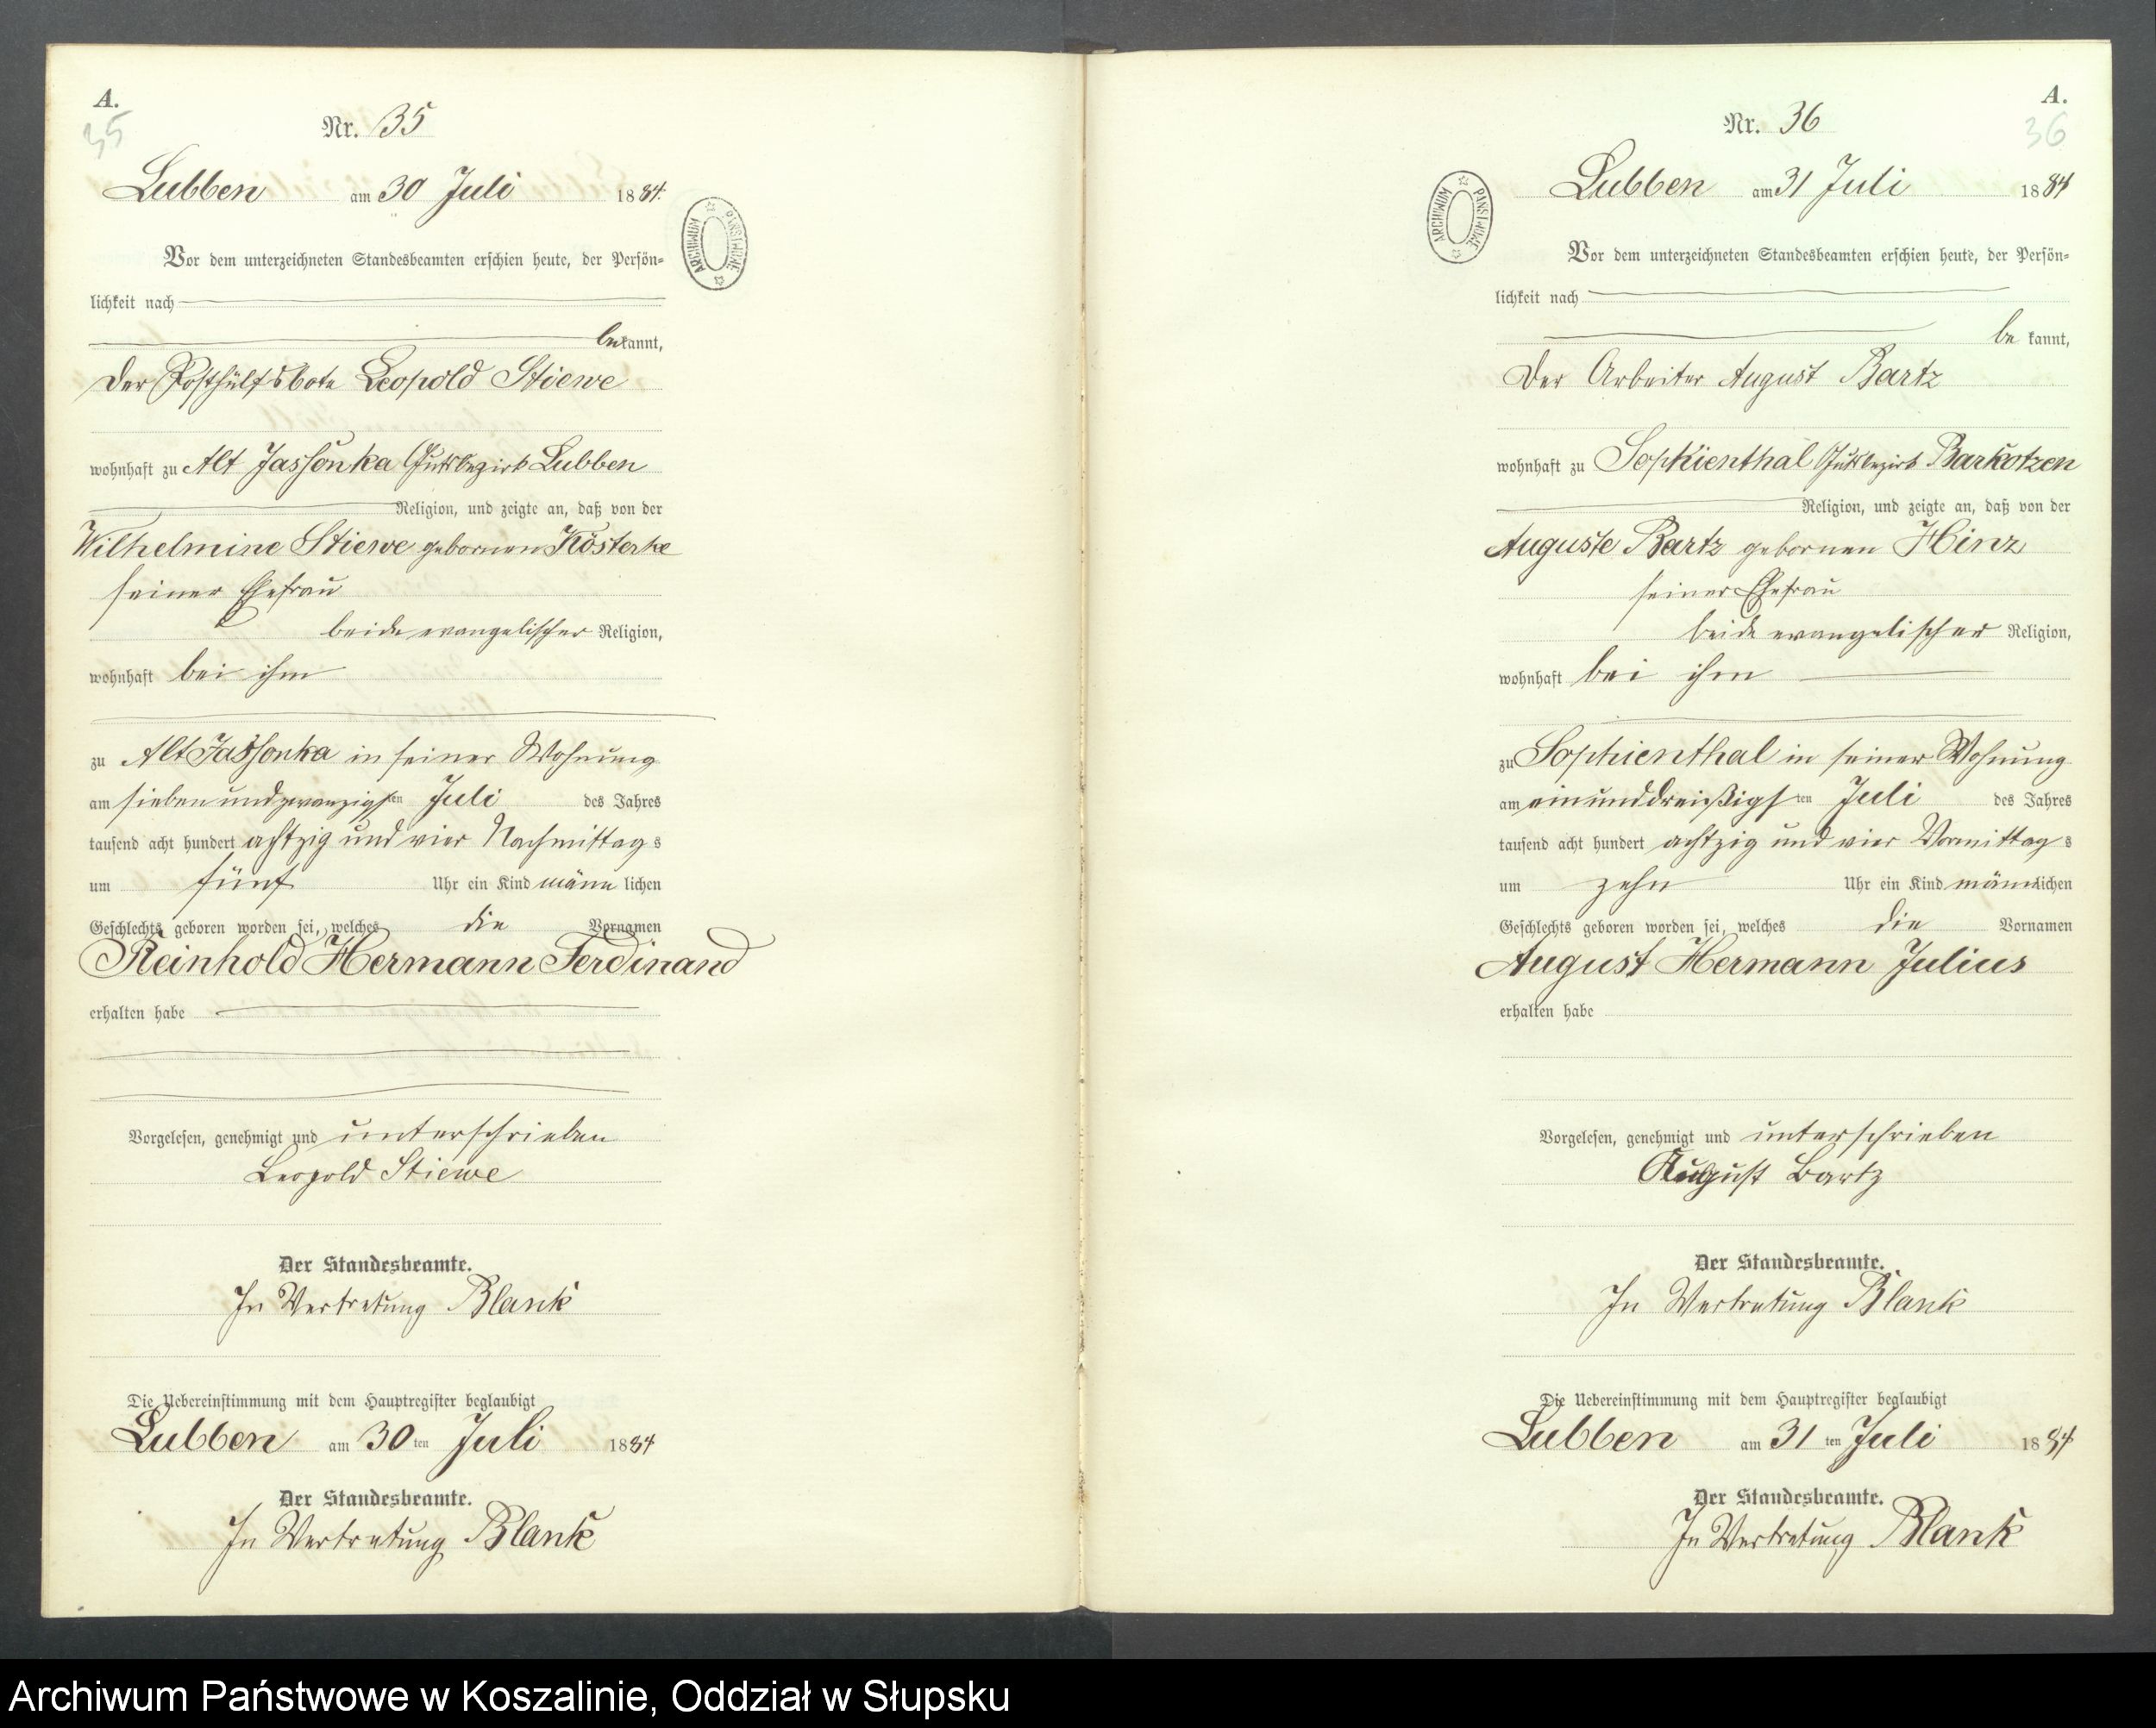 A.
35
Nr. 35
Lubben am 30 Juli 1884.
Vor dem unterzeichneten Standesbeamten erschien heute, der Persön=
lichkeit nach
bekannt,
der Posthülfsbote Leopold Stiewe
wohnhaft zu Alt Jassonka Gutsbezirk Lubben
Religion, und zeigte an, daß von der
Wilhelmine Stiewe gebornen Kösterke
seiner Ehefrau
beide evangelischer Religion,
wohnhaft bei ihm
zu Alt Jassonka in seiner Wohnung
am siebenundzwanzigsten Juli des Jahres
tausend acht hundert achtzig und vier Nachmittags
um fünf Uhr ein Kind männlichen
Geschlechts geboren worden sei, welches die Vornamen
Reinhold Hermann Ferdinand
erhalten habe
Vorgelesen, genehmigt und unterschrieben
Leopold Stiewe
Der Standesbeamte.
In Vertretung Blank
Die Uebereinstimmung mit dem Hauptregister beglaubigt
Lubben am 30ten Juli 1884
Der Standesbeamte.
In Vertretung Blank
ARCHIWUM PAŃSTWOWE
A.
36
Nr. 36
Lubben am 31 Juli 1884
Vor dem unterzeichneten Standesbeamten erschien heute, der Persön=
lichkeit nach
bekannt,
der Arbeiter August Bartz
wohnhaft zu Sophienthal Gutsbezirk Barkotzen
Religion, und zeigte an, daß von der
Auguste Bartz gebornen Hinz
seiner Ehefrau
beide evangelischer Religion,
wohnhaft bei ihm
zu Sophienthal in seiner Wohnung
am einunddreißigsten Juli des Jahres
tausend acht hundert achtzig und vier Vormittags
um zehn Uhr ein Kind männlichen
Geschlechts geboren worden sei, welches die Vornamen
August Hermann Julius
erhalten habe
Vorgelesen, genehmigt und unterschrieben
August Bartz
Der Standesbeamte.
In Vertretung Blank
Die Uebereinstimmung mit dem Hauptregister beglaubigt
Lubben am 31ten Juli 1884
Der Standesbeamte.
In Vertretung Blank
ARCHIWUM PAŃSTWOWE
Archiwum Państwowe w Koszalinie, Oddział w Słupsku